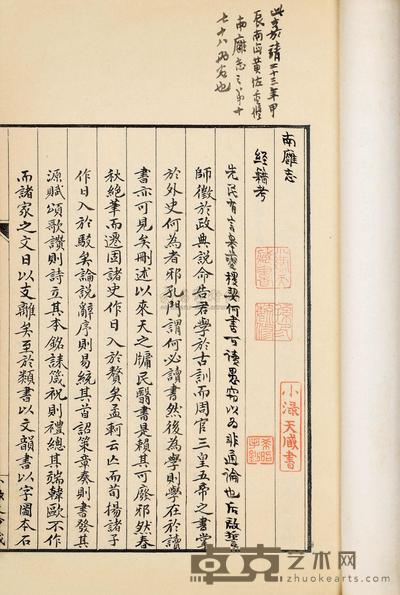 此嘉靖二十三年甲
辰南雍黃佐重修
南廱志之第十
七十八兩卷也
南廱志
經籍考
先民有言皋夔稷契何書可讀愚竊以為非通論也
師徵於政典說命告君學於古訓而周官三皇五帝之書掌
於外史何為者邪孔門謂何必讀書然後為學則學在於讀
書亦可見矣刪述以來天之牖民翳書是賴其可廢邪然春
秋絕筆而遷固諸史作日入於贅矣孟軻云亡而荀楊諸子
作日入於駁矣論說辭序則易統其首詔策章奏則書發其
源賦頌歌讚則詩立其本銘誄箴祝則禮總其端韓歐不作
而諸家之文日以支離矣至於類書以文韻書以字圖本石
小淥天藏書
卓克艺术网
www.zhuokearts.com